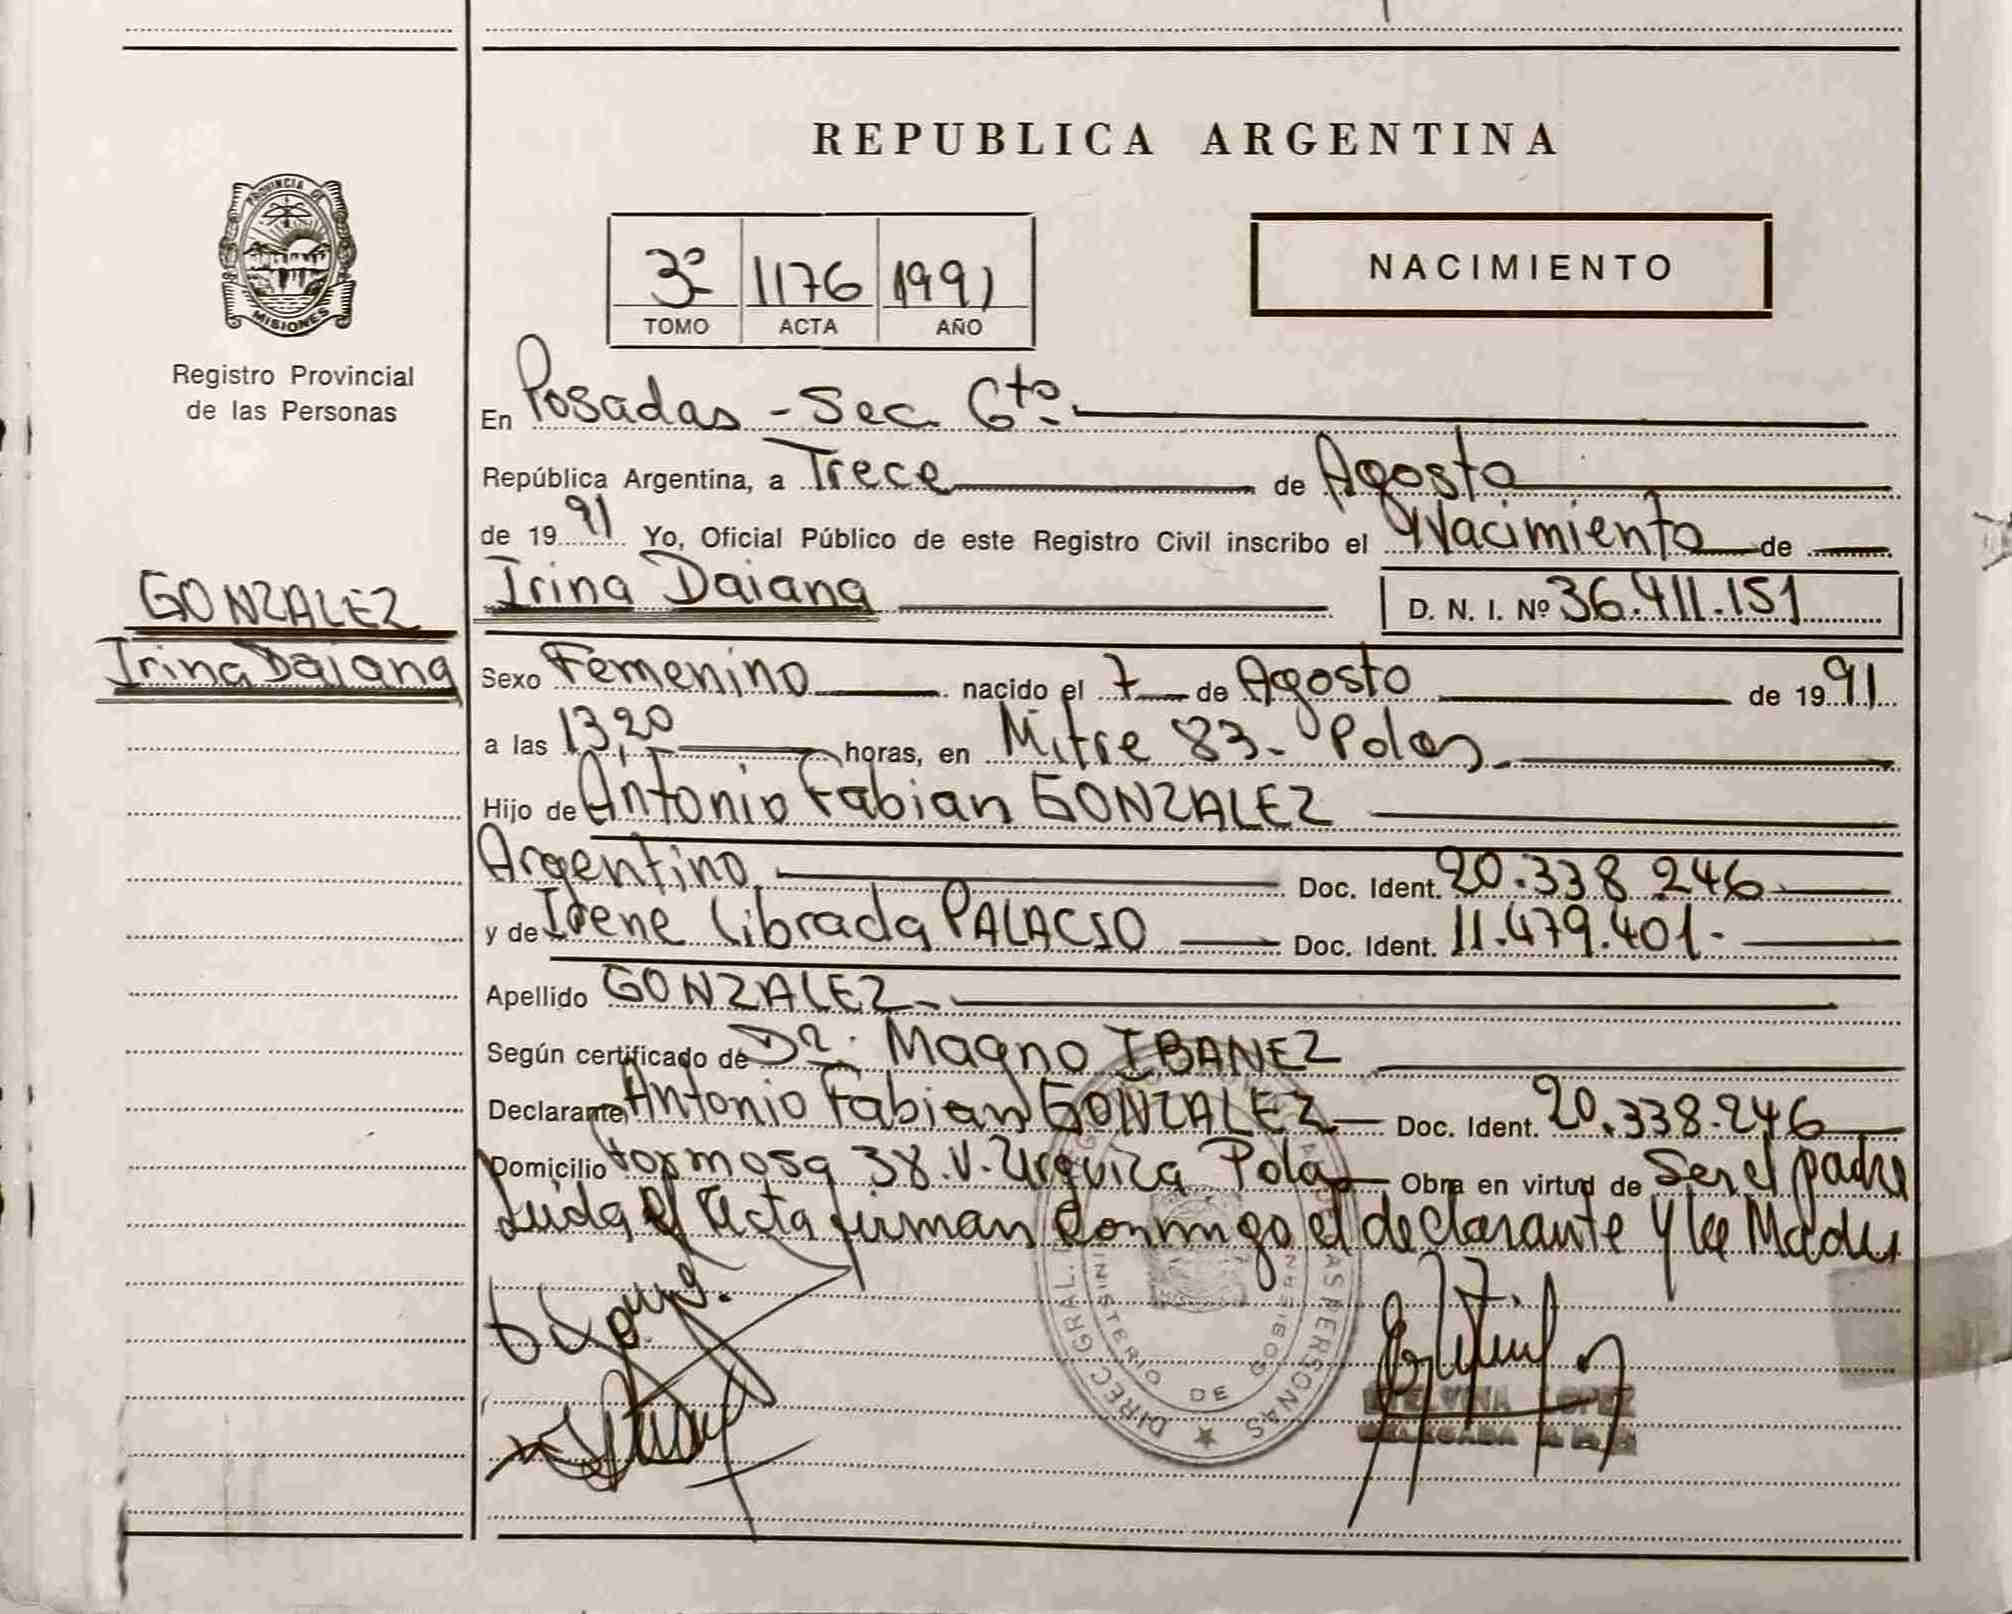 REPUBLICA ARGENTINA
PROVINCIA DE
MISIONES
Registro Provincial
de las Personas
3º 1176 1991
TOMO ACTA AÑO
NACIMIENTO
En Posadas - Sec. 6to.
República Argentina, a Trece de Agosto
de 1991 Yo, Oficial Público de este Registro Civil inscribo el Nacimiento de
GONZALEZ
Irina Daiana
Irina Daiana D. N. I. Nº 36.411.151
Sexo Femenino nacido el 7 de Agosto de 1991
a las 13,20 horas, en Mitre 83- Pdas.
Hijo de Antonio Fabian GONZALEZ
Argentino Doc. Ident. 20.338.246
y de Irene Librada PALACIO Doc. Ident. 11.479.401.-
Apellido GONZALEZ.
Según certificado de Dr. Magno IBANEZ
Declarante Antonio Fabian GONZALEZ Doc. Ident. 20.338.246
Domicilio Formosa 38. V. Urquiza Pdas Obra en virtud de Ser el padre
Leida el Acta firman conmigo el declarante y la Madre
DIREC. GRAL. PERSONAS
MINISTERIO DE GOBIERNO
ETELVINA LOPEZ
DELEGADA